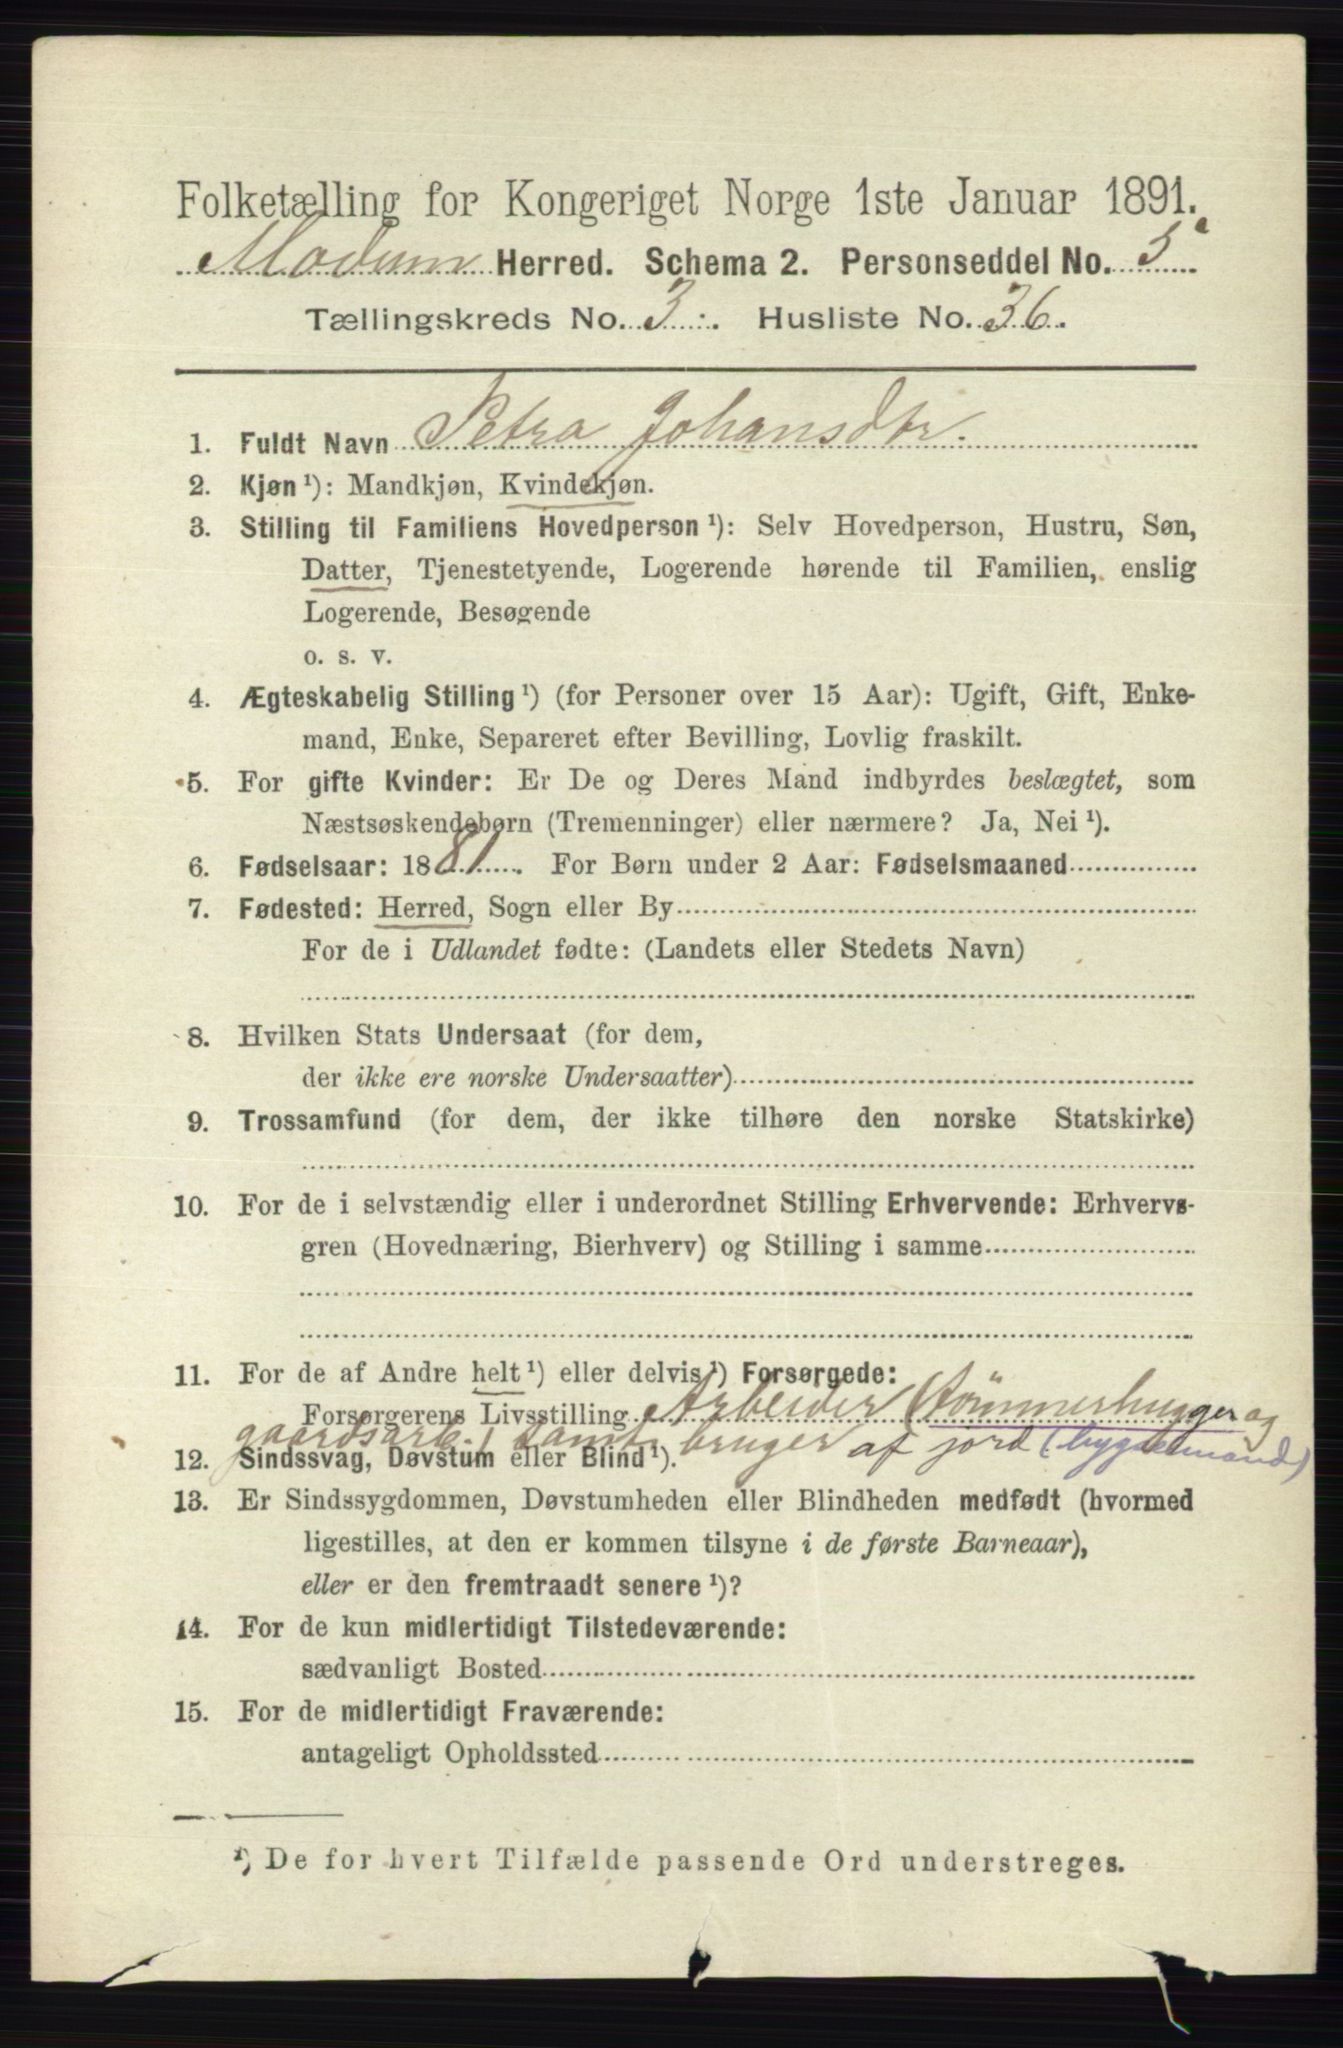 Folketælling for Kongeriget Norge 1ste Januar 1891.
Modum Herred. Schema 2. Personseddel No. 5
Tællingskreds No. 3. Husliste No. 36.
1. Fuldt Navn Petra Johansdtr.
2. Kjøn ¹): Mandkjøn, Kvindekjøn.
3. Stilling til Familiens Hovedperson ¹): Selv Hovedperson, Hustru, Søn,
Datter, Tjenestetyende, Logerende hørende til Familien, enslig
Logerende, Besøgende
o. s. v.
4. Ægteskabelig Stilling ¹) (for Personer over 15 Aar): Ugift, Gift, Enke-
mand, Enke, Separeret efter Bevilling, Lovlig fraskilt.
5. For gifte Kvinder: Er De og Deres Mand indbyrdes beslægtet, som
Næstsøskendebørn (Tremenninger) eller nærmere? Ja, Nei ¹).
6. Fødselsaar: 1881. For Børn under 2 Aar: Fødselsmaaned
7. Fødested: Herred, Sogn eller By
For de i Udlandet fødte: (Landets eller Stedets Navn)
8. Hvilken Stats Undersaat (for dem,
der ikke ere norske Undersaatter)
9. Trossamfund (for dem, der ikke tilhøre den norske Statskirke)
10. For de i selvstændig eller i underordnet Stilling Erhvervende: Erhvervs-
gren (Hovednæring, Bierhverv) og Stilling i samme
11. For de af Andre helt ¹) eller delvis ¹) Forsørgede:
Forsørgerens Livsstilling Arbeider (tømmerhugger og
gaardsarb.) samt bruger af jord (bygselmand)
12. Sindssvag, Døvstum eller Blind ¹).
13. Er Sindssygdommen, Døvstumheden eller Blindheden medfødt (hvormed
ligestilles, at den er kommen tilsyne i de første Barneaar),
eller er den fremtraadt senere ¹)?
14. For de kun midlertidigt Tilstedeværende:
sædvanligt Bosted
15. For de midlertidigt Fraværende:
antageligt Opholdssted
¹) De for hvert Tilfælde passende Ord understreges.